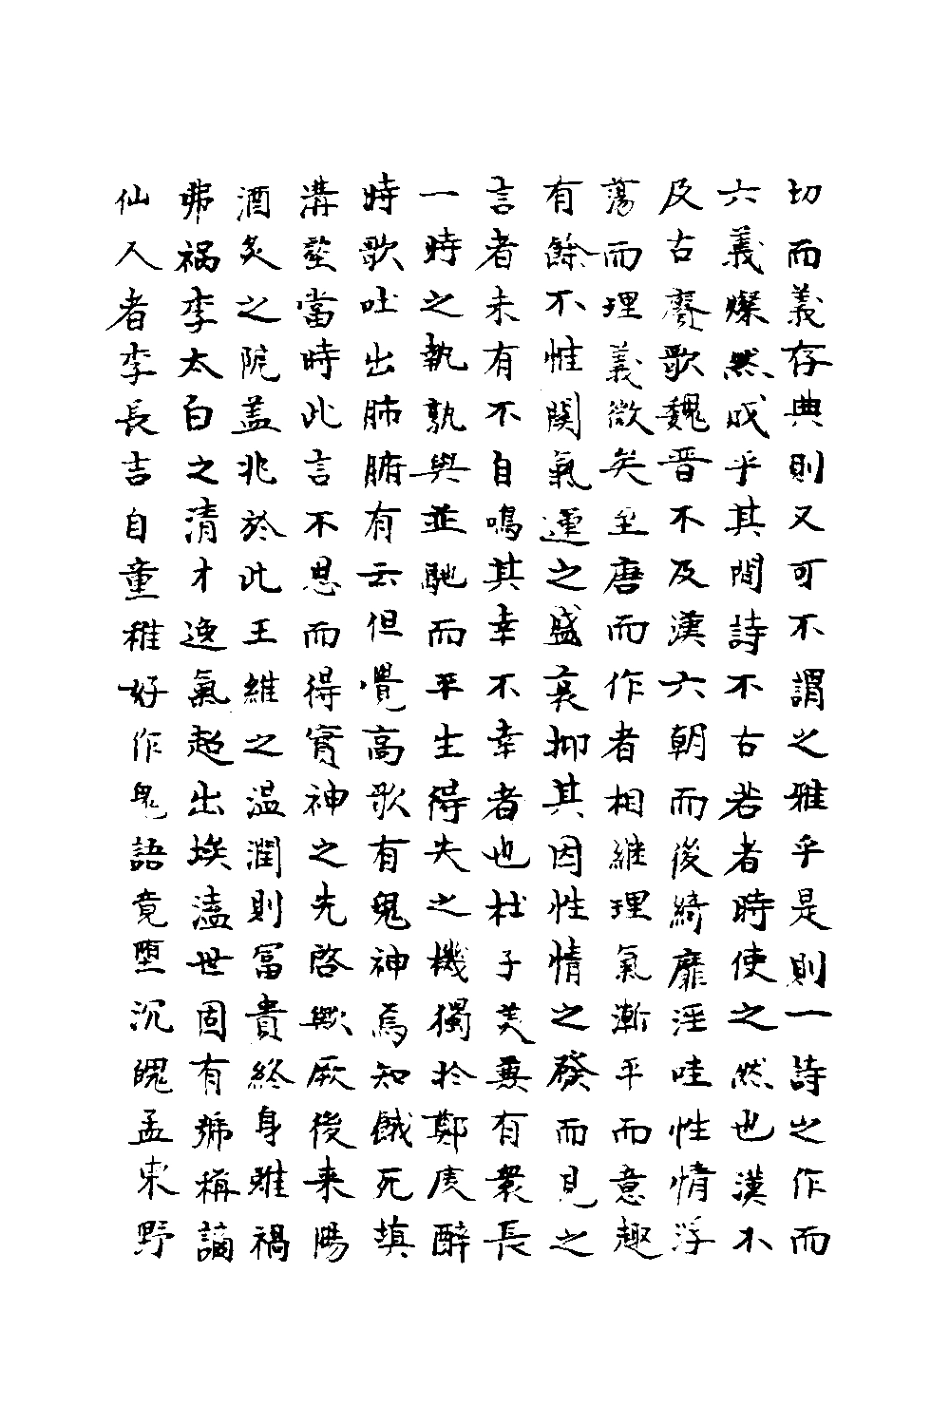 切而義存典則又可不謂之雅乎是則一詩之作而
六義燦然咸乎其間詩不古若者時使之然也漢不
及古賡歌魏晋不及漢六朝而後綺靡淫哇性情浮
蕩而理義微矣至唐而作者相継理氣漸平而意趣
有餘不惟関氣運之盛衰抑其因性情之發而見之
言者未有不自鳴其幸不幸者也杜子美兼有衆長
一時之執孰與並馳而平生得失之機獨於鄭虔醉
時歌吐出肺腑有云但覺高歌有鬼神焉知餓死填
溝壑當時此言不思而得實神之先啓歟厥後来陽
酒炙之阨盖兆於此王維之温潤則冨貴終身雖禍
弗禍李太白之清才逸氣超出埃溘世固有号稱謫
仙人者李長吉自童稚好作鬼語竟墮沉魄孟東野